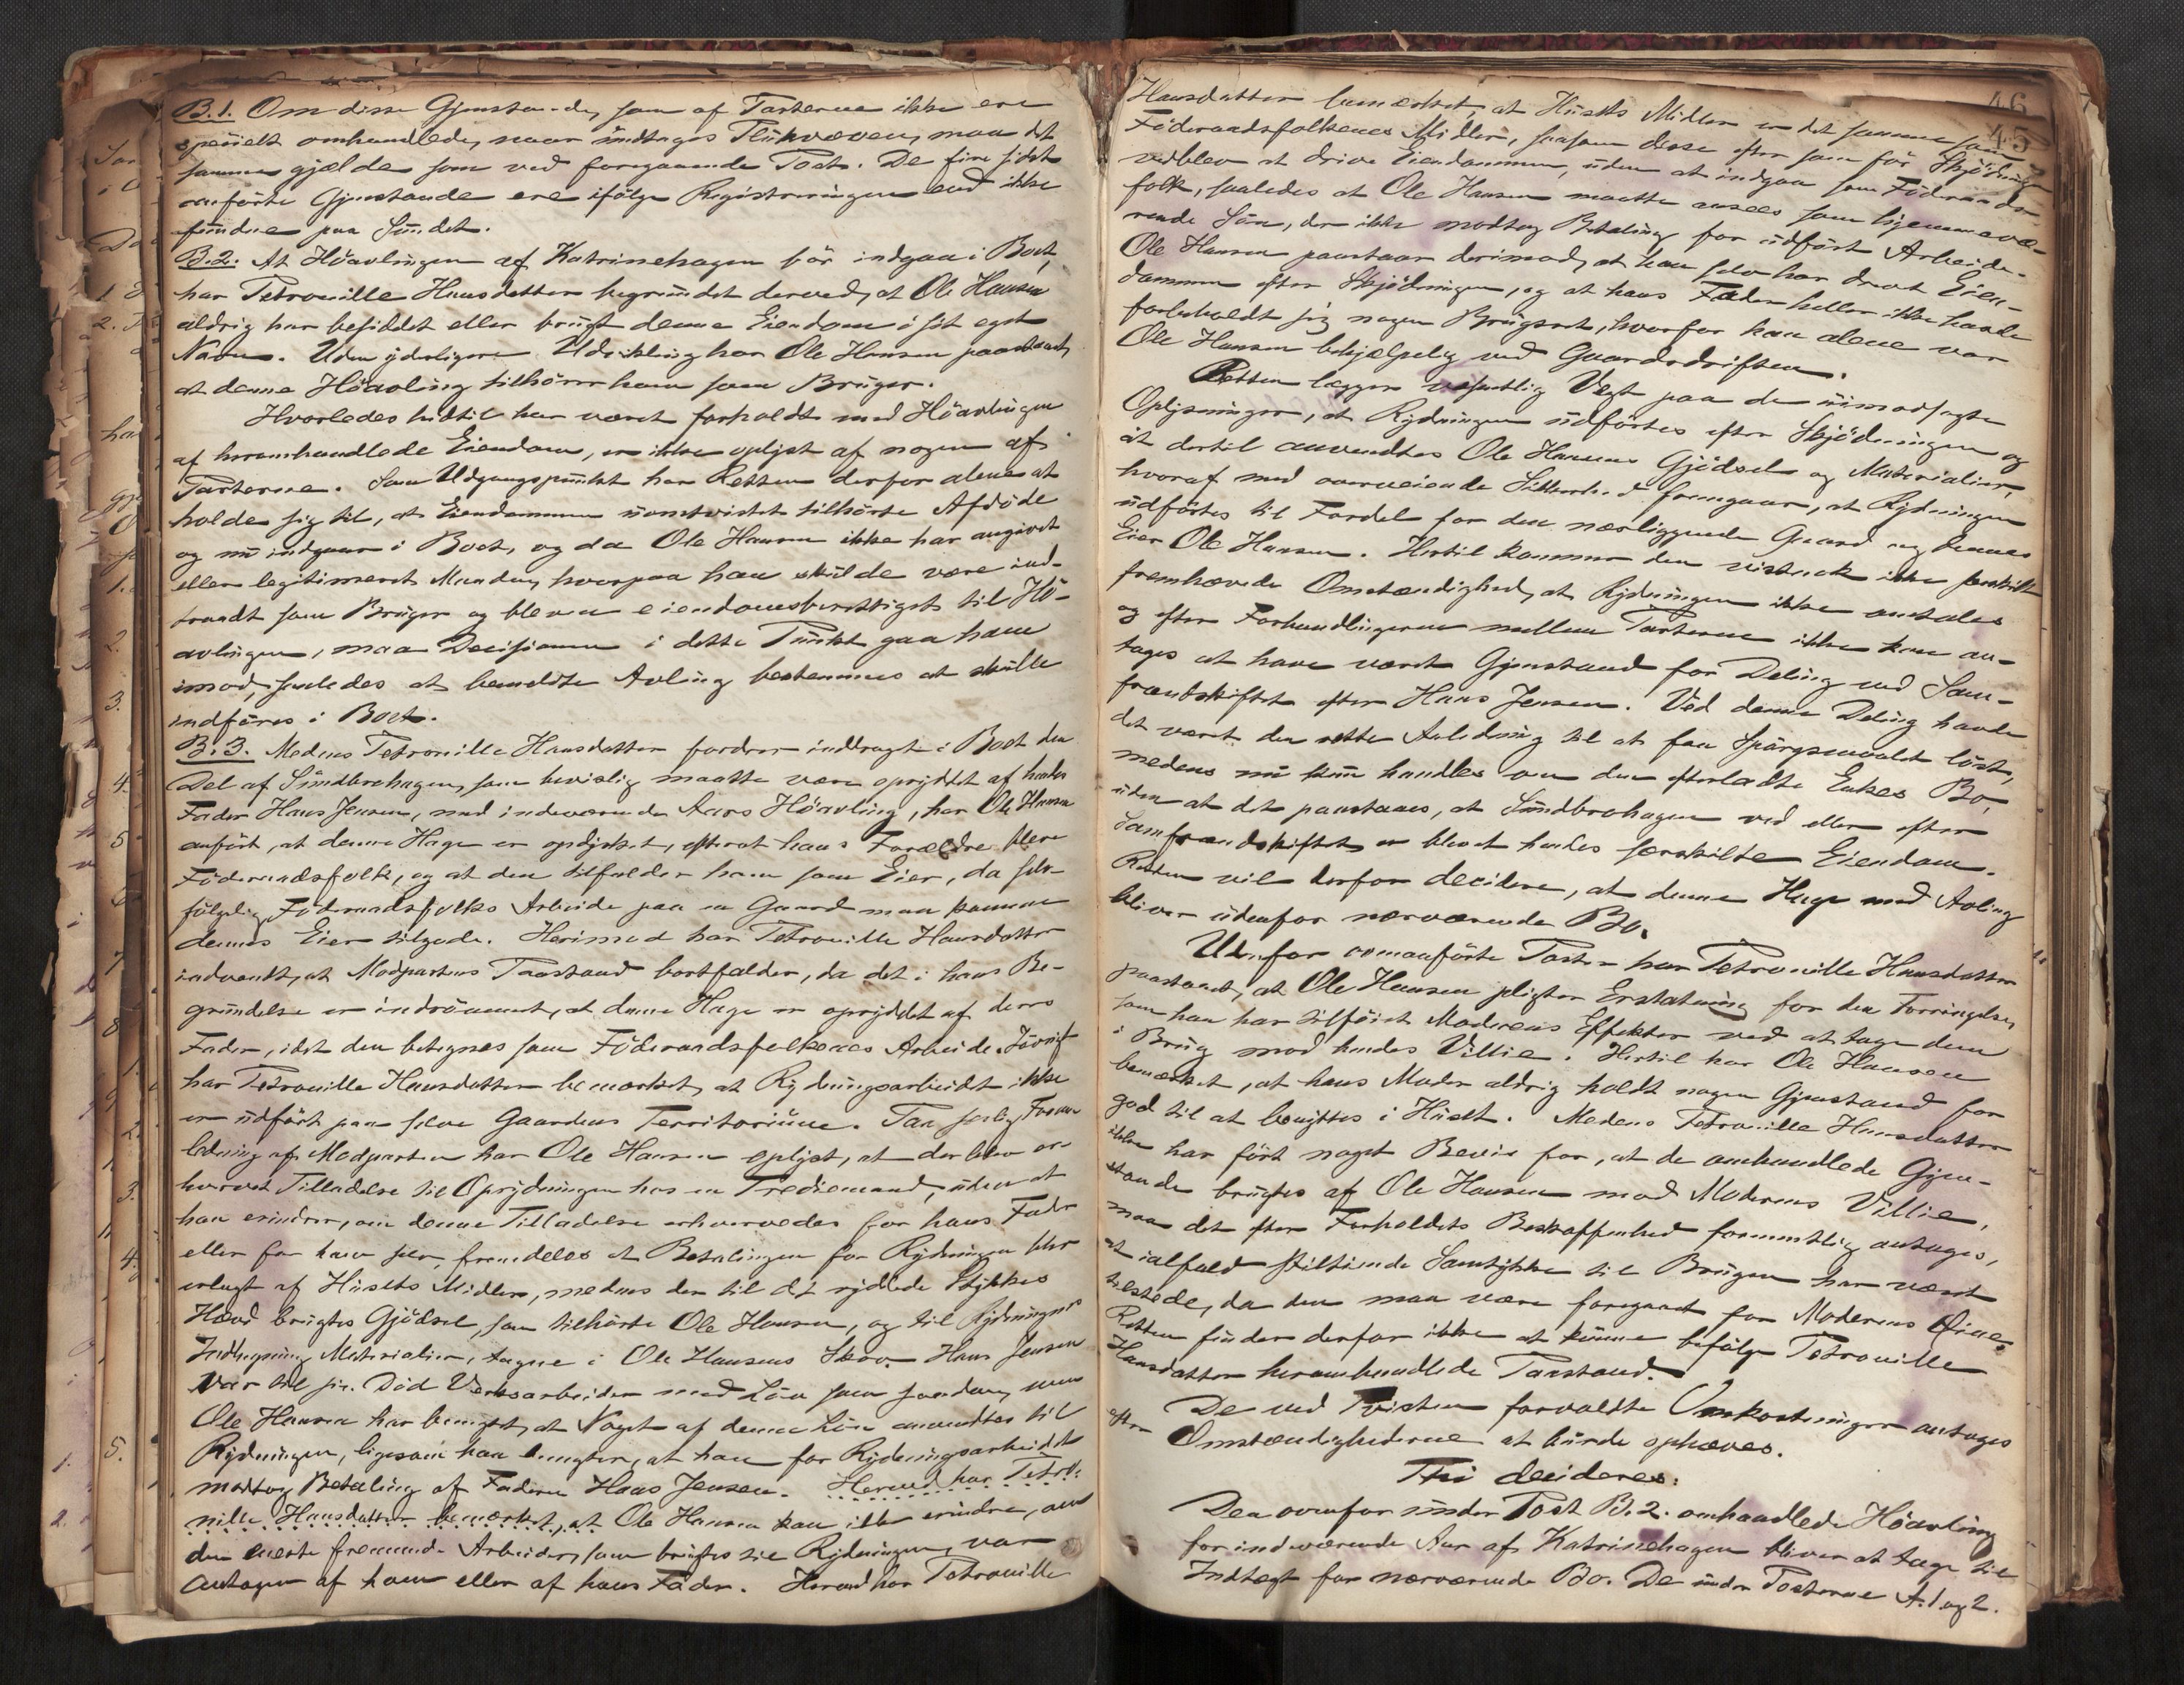 B.1. Om disse Gjenstande, som af Parterne ikke ere
specielt omhandlede, naar undtages Flükvæven, maa det
samme gjælde som ved foregaaende Post. De fire sidst
anførte Gjenstande ere ifølge Registreringen end ikke
fundne paa Sundet.
B.2. At Høavlingen af Katrinehagen bør indgaa i Boet,
har Petronille Hansdatter begrundet derved, at Ole Hansen
aldrig har besiddet eller brugt denne Eiendom i sit eget
Navn. Uden yderligere Udvikling har Ole Hansen paastaaet,
at denne Høavling tilhører ham som Bruger.
Hvorledes hidtil har været forholdt med Høavlingen
af heromhandlede Eiendom, er ikke oplyst af nogen af
Parterne. Som Udgangspunkt har Retten derfor alene at
holde sig til, at Eiendommen uomtvistet tilhørte Afdøde
og nu indgaar i Boet, og da Ole Hansen ikke har angivet
eller legitimeret Maaden, hvorpaa han skulde være ind-
traadt som Bruger og bleven eiendomsberettiget til Hø-
avlingen, maa Decisionen i dette Punkt gaa ham
imod, saaledes at bemeldte Avling bestemmes at skulle
indføres i Boet.
B.3. Medens Petronille Hansdatter fordrer inddraget i Boet den
Del af Sundbrohagen, som bevislig maatte være opryddet af hendes
Fader Hans Jensen, med indeværende Aars Høavling, har Ole Hansen
anført, at denne Hage er opdyrket, efterat hans Forældre bleve
Føderaadsfolk, og at den tilfalder ham som Eier, da selv-
følgelig Føderaadsfolks Arbeide paa en Gaard maa komme
dennes Eier tilgode. Herimod har Petronille Hansdatter
indvendt, at Modpartens Paastand bortfalder, da det i hans Be-
grundelse er indrømmet, at denne Hage er opryddet af deres
Fader, idet den betegnes som Føderaadsfolkenes Arbeide. Iøvrigt
har Petronille Hansdatter bemærket, at Rydningsarbeidet ikke
er udført paa selve Gaardens Territorium. Paa særlig Foran-
ledning af Modparten har Ole Hansen oplyst, at der blev er-
hvervet Tilladelse til Oprydningen hos en Trediemand, uden at
han erindrer, om denne Tilladelse erhvervedes for hans Fader
eller for ham selv, fremdeles at Betalingen for Rydningen blev
erlagt af Husets Midler, medens der til det ryddede Stykkes
Hævd brugtes Gjødsel, som tilhørte Ole Hansen, og til Rydningens
Indhegning Materialier, tagne i Ole Hansens Skov. Hans Jensen
var til sin Død Verksarbeider med Løn som saadan, men
Ole Hansen har benegtet, at Noget af denne Løn anvendtes til
Rydningen, ligesom han benegter, at han for Rydningsarbeidet
modtog Betaling af Faderen Hans Jensen. Herved har Petro-
nille Hansdatter bemærket, at Ole Hansen kan ikke erindre, om
den eneste fremmede Arbeider, som brugtes til Rydningen, var
antagen af ham eller af hans Fader. Herved har Petronille
46
45
Hansdatter bemærket, at Husets Midler er det samme som
Føderaadsfolkenes Midler, saasom disse efter som før Skjødningen
vedblev at drive Eiendommen, uden at indgaa som Føderaads-
folk, saaledes at Ole Hansen maatte ansees som hjemmevæ-
rende Søn, der ikke modtog Betaling for udført Arbeide.
Ole Hansen paastaar derimod, at han selv har drevet Eien-
dommen efter Skjødningen, og at hans Fader heller ikke havde
forbeholdt sig nogen Brugsret, hvorfor han alene var
Ole Hansen behjælpelig ved Gaardsdriften.
Retten lægger væsentlig Vegt paa de uimodsagte
Oplysninger, at Rydningen udførtes efter Skjødningen og
at dertil anvendtes Ole Hansens Gjødsel og Materialier,
hvoraf med overveiende Sikkerhed fremgaar, at Rydningen
udførtes til Fordel for den nærliggende Gaard og dennes
Eier Ole Hansen. Hertil kommer den vistnok ikke særskilt
fremhævede Omstændighed, at Rydningen ikke omtales
og efter Forhandlingerne mellem Parterne ikke kan an-
tages at have været Gjenstand for Deling ved Sam-
frændskiftet efter Hans Jensen. Ved denne Deling havde
det været den rette Anledning til at faa Spørgsmaalet løst,
medens nu kun handles om den efterladte Enkes Bo,
uden at det paastaaes, at Sundbrohagen ved eller efter
Samfrændskiftet er blevet hendes særskilte Eiendom.
Retten vil derfor decidere, at denne Hage med Avling
bliver udenfor nærværende Bo.
Udenfor ovenanførte Poster har Petronille Hansdatter
paastaaet, at Ole Hansen pligter Erstatning for den Forringelse,
som han har tilføiet Moderens Effekter ved at tage dem
i Brug mod hendes Villie. Hertil har Ole Hansen
bemærket, at hans Moder aldrig holdt nogen Gjenstand for
god til at benyttes i Huset. Medens Petronille Hansdatter
ikke har ført noget Bevis for, at de omhandlede Gjen-
stande brugtes af Ole Hansen mod Moderens Villie,
maa det efter Forholdets Beskaffenhed formentlig antages,
at ialfald stiltiende Samtykke til Brugen har været
tilstede, da den maa være foregaaet for Moderens Øine.
Retten finder derfor ikke at kunne befølge Petronille
Hansdatters heromhandlede Paastand.
De ved Tvisten forvoldte Omkostninger antages
efter Omstændighederne at burde ophæves.
Thi decideres:
Den ovenfor under Post B.2. omhandlede Høavling
for indeværende Aar af Katrinehagen bliver at tage til
Indtægt for nærværende Bo. De under Posterne A.1 og 2.